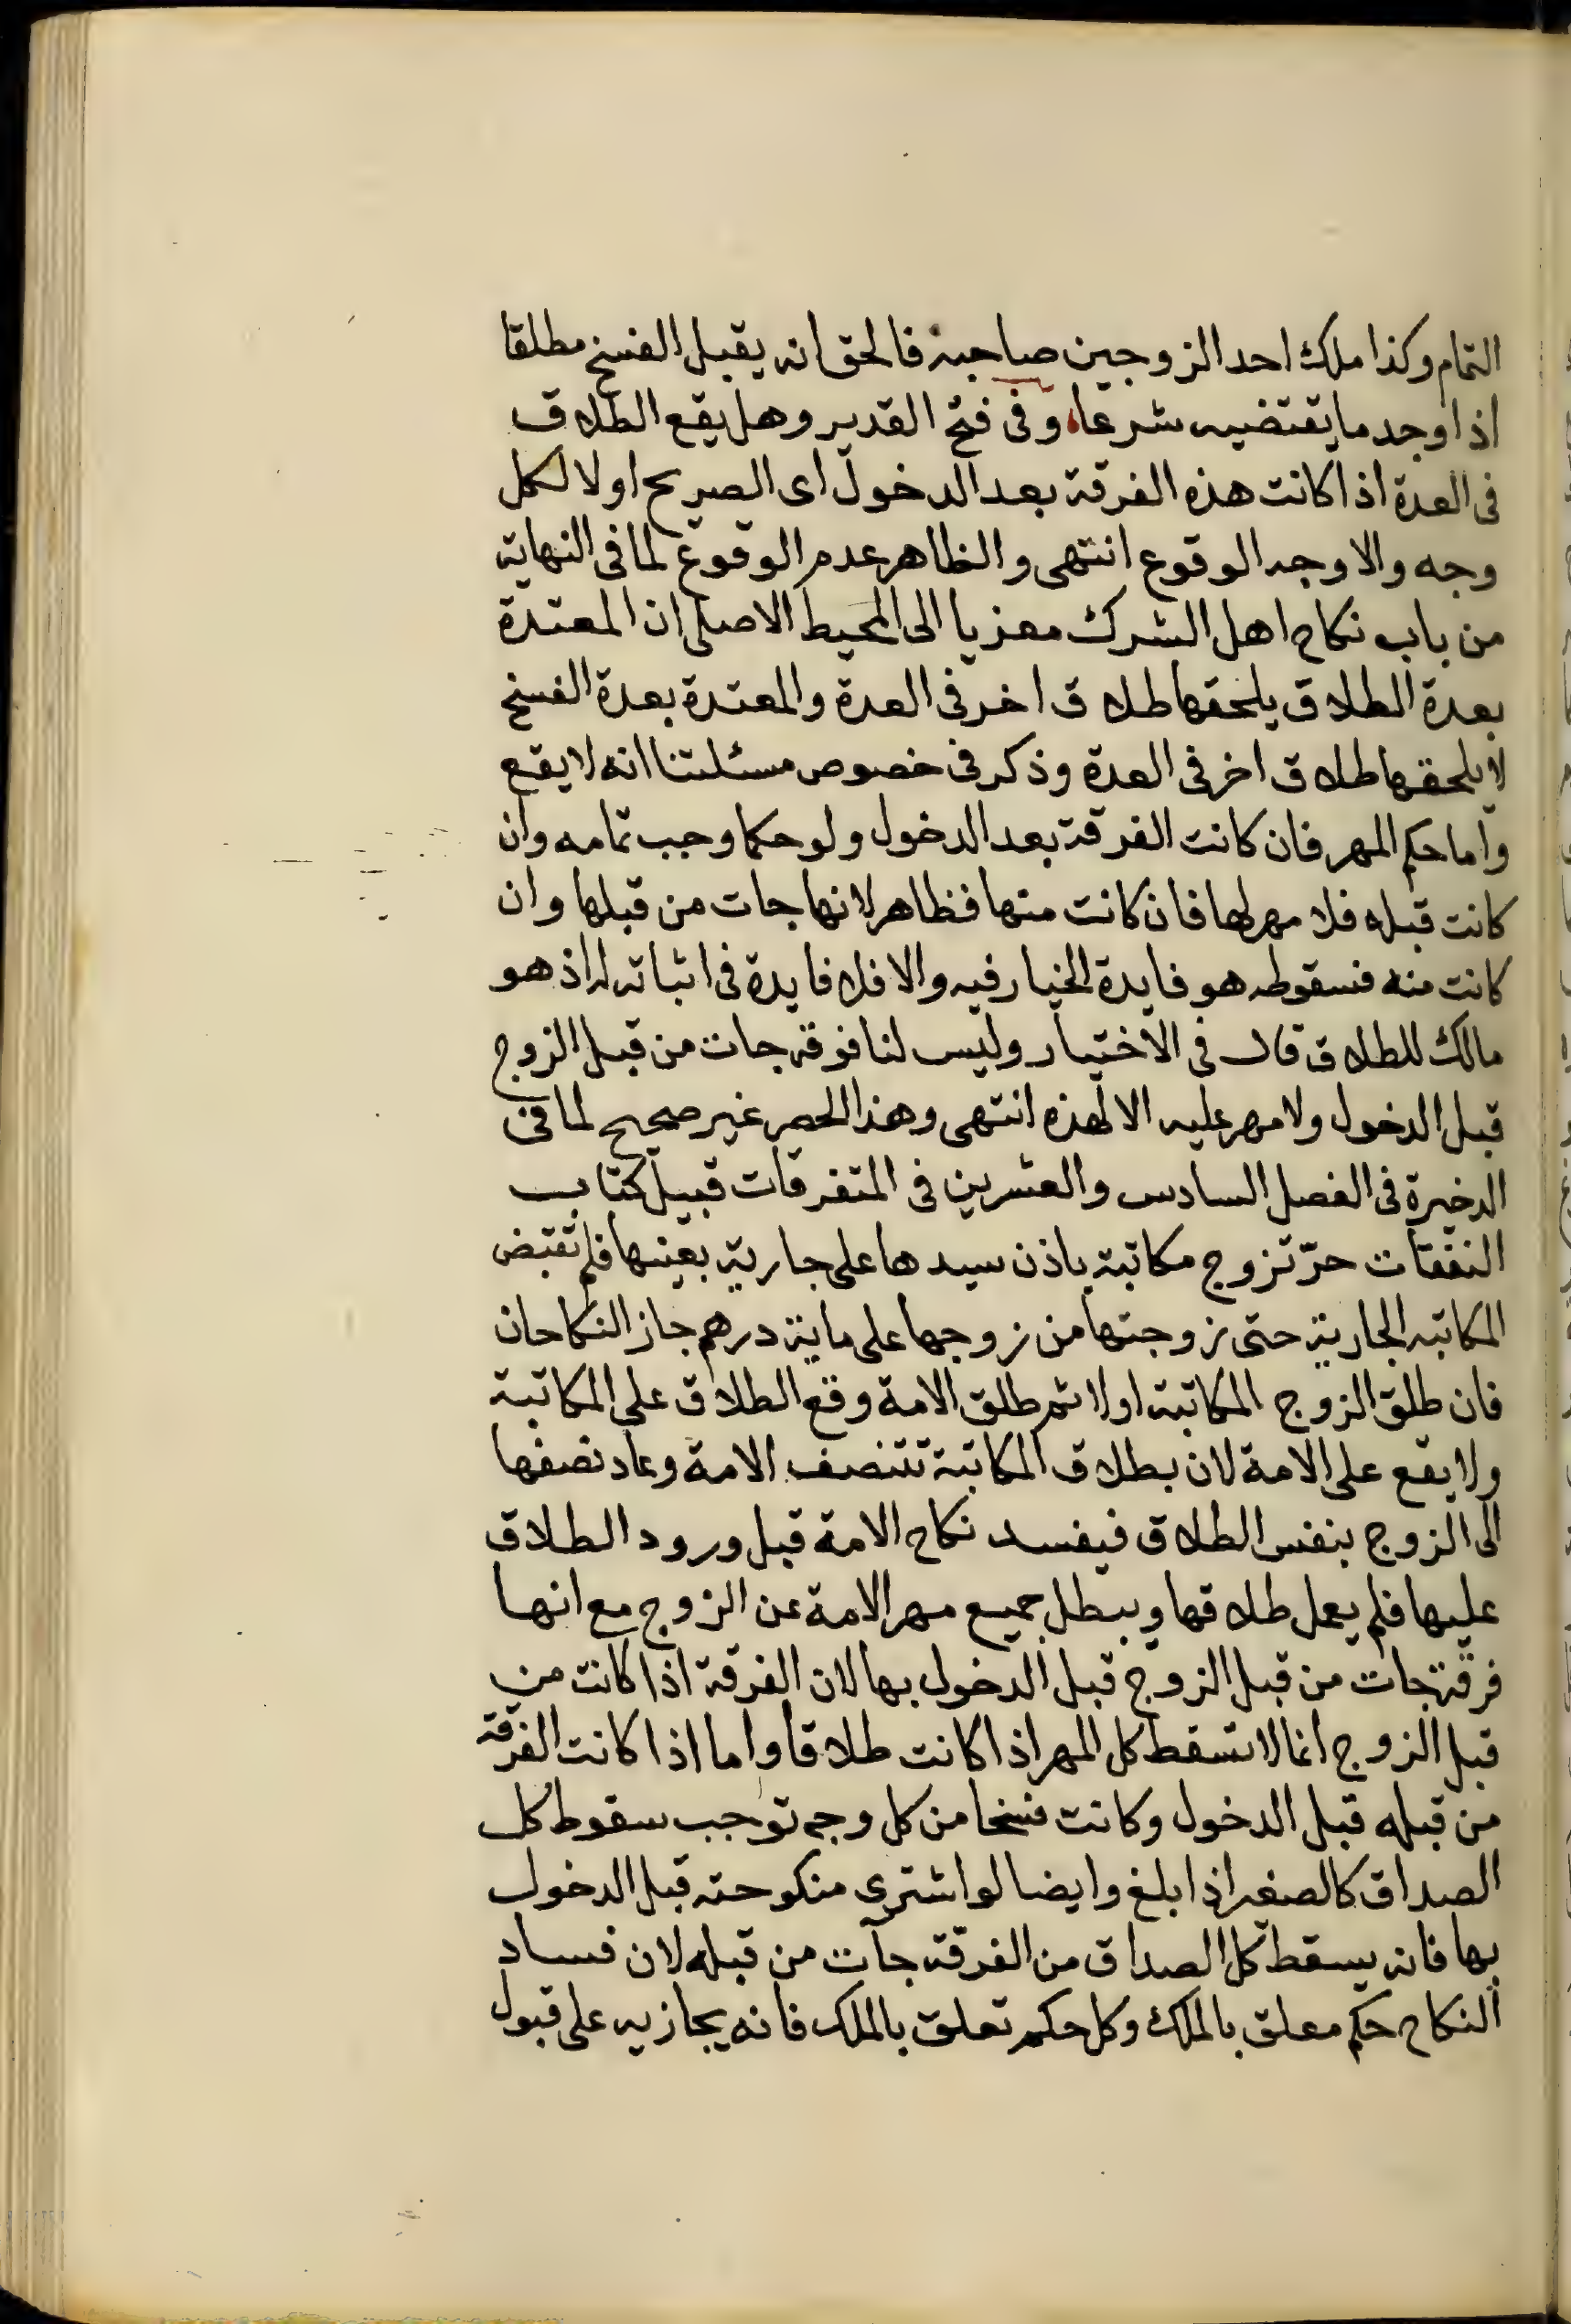 التمام وكذا ملك احد الزوجين صاحبه فالحق انه يقبل الفسخ مطلقا
اذا وجد ما يقتضيه شرعا وفى فتح القدير وهل يقع الطلاق
فى العدة اذا كانت هذه الفرقة بعد الدخول اى الصريح اولا لكل
وجه والاوجه الوقوع انتهى والظاهر عدم الوقوع لما فى النهاية
من باب نكاح اهل الشرك معزيا الى المحيط الاصل ان المعتدة
بعدة الطلاق يلحقها طلاق اخر فى العدة والمعتدة بعدة الفسخ
لا يلحقها طلاق اخر فى العدة وذكر فى خصوص مسئلتنا انه لا يقع
واما حكم المهر فان كانت الفرقة بعد الدخول ولو حكما وجب تمامه وان
كانت قبله فلا مهر لها فان كانت منها فظاهر لانها جات من قبلها وان
كانت منه فسقوطه هو فايدة الخيار فيه والا فلا فايدة فى اثباته له اذ هو
مالك للطلاق قال فى الاختيار وليس لنا فرقة جات من قبل الزوج
قبل الدخول ولا مهر عليه الا لهذه انتهى وهذا الحصر غير صحيح لما فى
الدخيرة فى الفصل السادس والعشرين فى المتفرقات قبيل كتاب
النفقات حرّ تزوج مكاتبة باذن سيدها على جارية بعينها فلم تقبض
المكاتبه الجارية حتى زوجتها من زوجها على ماية درهم جاز النكاحان
فان طلق الزوج المكاتبة اولا ثم طلق الامة وقع الطلاق على المكاتبة
ولا يقع على الامة لان بطلاق المكاتبة تتنصف الامة وعاد نصفها
الى الزوج بنفس الطلاق فيفسد نكاح الامة قبل ورود الطلاق
عليها فلم يعمل طلاقها ويبطل جميع مهر الامة عن الزوج مع انها
فرقة جات من قبل الزوج قبل الدخول بها لان الفرقة اذا كانت من
قبل الزوج انما لا تسقط كل المهر اذا كانت طلاقا واما اذا كانت الفرقة
من قبله قبل الدخول وكانت فسخا من كل وجه توجب سقوط كل
الصداق كالصغير اذا بلغ وايضا لو اشترى منكوحته قبل الدخول
بها فانه يسقط كل الصداق من الفرقة جآت من قبله لان فساد
النكاح حكم معلق بالملك وكل حكم تعلق بالملك فانه يجازيه على قبول